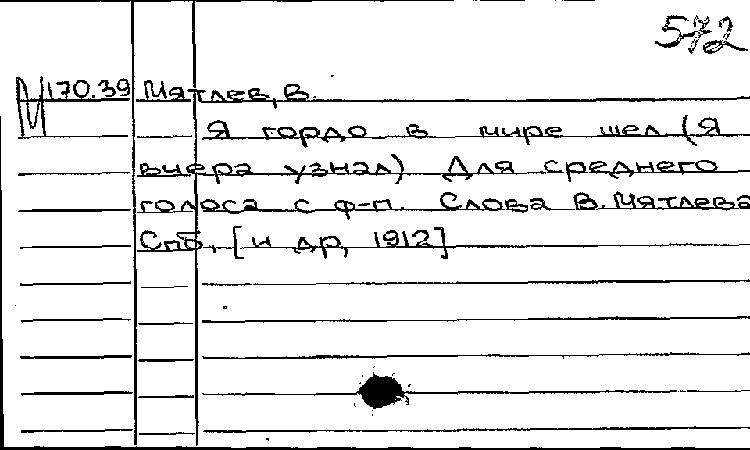 572
М 170.39 Мятлев, В.
Я гордо в мире шел (Я
вчера узнал) Для среднего
голоса с ф-п. Слова В. Мятлева
Спб, [и др, 1912]